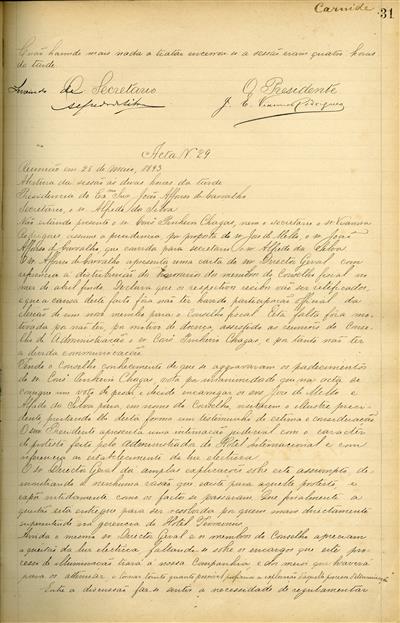 Carnide 31
Não havendo mais nada a tratar encerrou-se a sessão eram quatro horas
da tarde.
O Secretario O Presidente
Acta Nº 29
Reunião em 26 de Maio, 1893
Abertura da sessão ás duas horas da tarde
Presidencia do Exmo Snr João Affonso de Carvalho
Secretario, o sr. Alfredo da Silva
Não estando presente o sr. Conso Pinheiro Chagas, nem o secretario o sr. Vianna
Rodrigues assume a presidencia por proposta do sr. José de Mello o sr. João
Affonso de Carvalho que convida para secretario o sr. Alfredo da Silva
O sr. Affonso de Carvalho apresenta uma carta do sr. Director Geral com
referencia á distribuição de honorarios dos membros do Conselho fiscal no
mez de abril findo. Declara que os respectivos recibos vão ser rectificados,
e que a causa deste facto fôra não ter havido participação official da
eleição de um novo membro para o Conselho fiscal. Esta falta fôra mo-
tivada por não ter, por motivo de doença, assistido ás reuniões do Conse-
lho de Administração o sr. Conso Pinheiro Chagas, e por tanto não ter
a devida communicação.
Tendo o Conselho conhecimento de que se aggravaram os padecimentos
do sr. Conso Pinheiro Chagas, vota por unanimidade que na acta se
consigne um voto de pesar, e decide encarregar os srs. José de Mello e
Alfredo da Silva para, em nome do Conselho, visitarem o illustre presi-
dente prestando-lhe desta forma um testemunho de estima e consideração
O snr Presidente apresenta uma intimação judicial com o caracter
de protesto feito pelo Administrador do Hotel Internacional e com
referencia ao estabelecimento da luz electrica.
O sr. Director Geral dá amplas explicações sobre este assumpto de-
monstrando a nenhuma razão que existe para aquelle protesto e
expõe nitidamente como os factos se passaram. Que finalmente a
questão está entregue para ser resolvida por quem mais directamente
superintende na gerencia do Hotel
Ainda o mesmo sr. Director Geral e os membros do Conselho apreciam
a questão da luz electrica fallando-se sobre os encargos que este pro-
cesso de illuminação trará á nossa Companhia e dos meios que haverá
para os attenuar
Entre a discussão faz-se sentir a necessidade de regulamentar